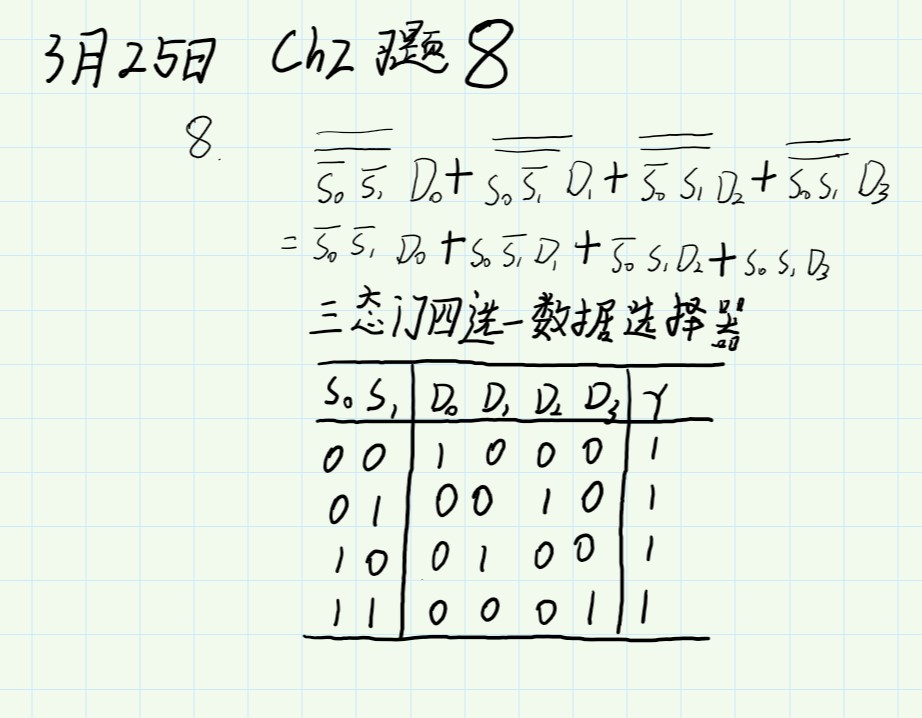 3月25日 Ch2 习题 8
8. $\overline{\overline{\overline{S_0}\,\overline{S_1}}} D_0 + \overline{\overline{S_0\overline{S_1}}} D_1 + \overline{\overline{\overline{S_0}S_1}} D_2 + \overline{\overline{S_0S_1}} D_3$
$= \overline{S_0}\,\overline{S_1} D_0 + S_0\overline{S_1}D_1 + \overline{S_0}S_1D_2 + S_0S_1D_3$
三态门四选一数据选择器
S₀ S₁ D₀ D₁ D₂ D₃ Y
0 0 1 0 0 0 1
0 1 0 0 1 0 1
1 0 0 1 0 0 1
1 1 0 0 0 1 1